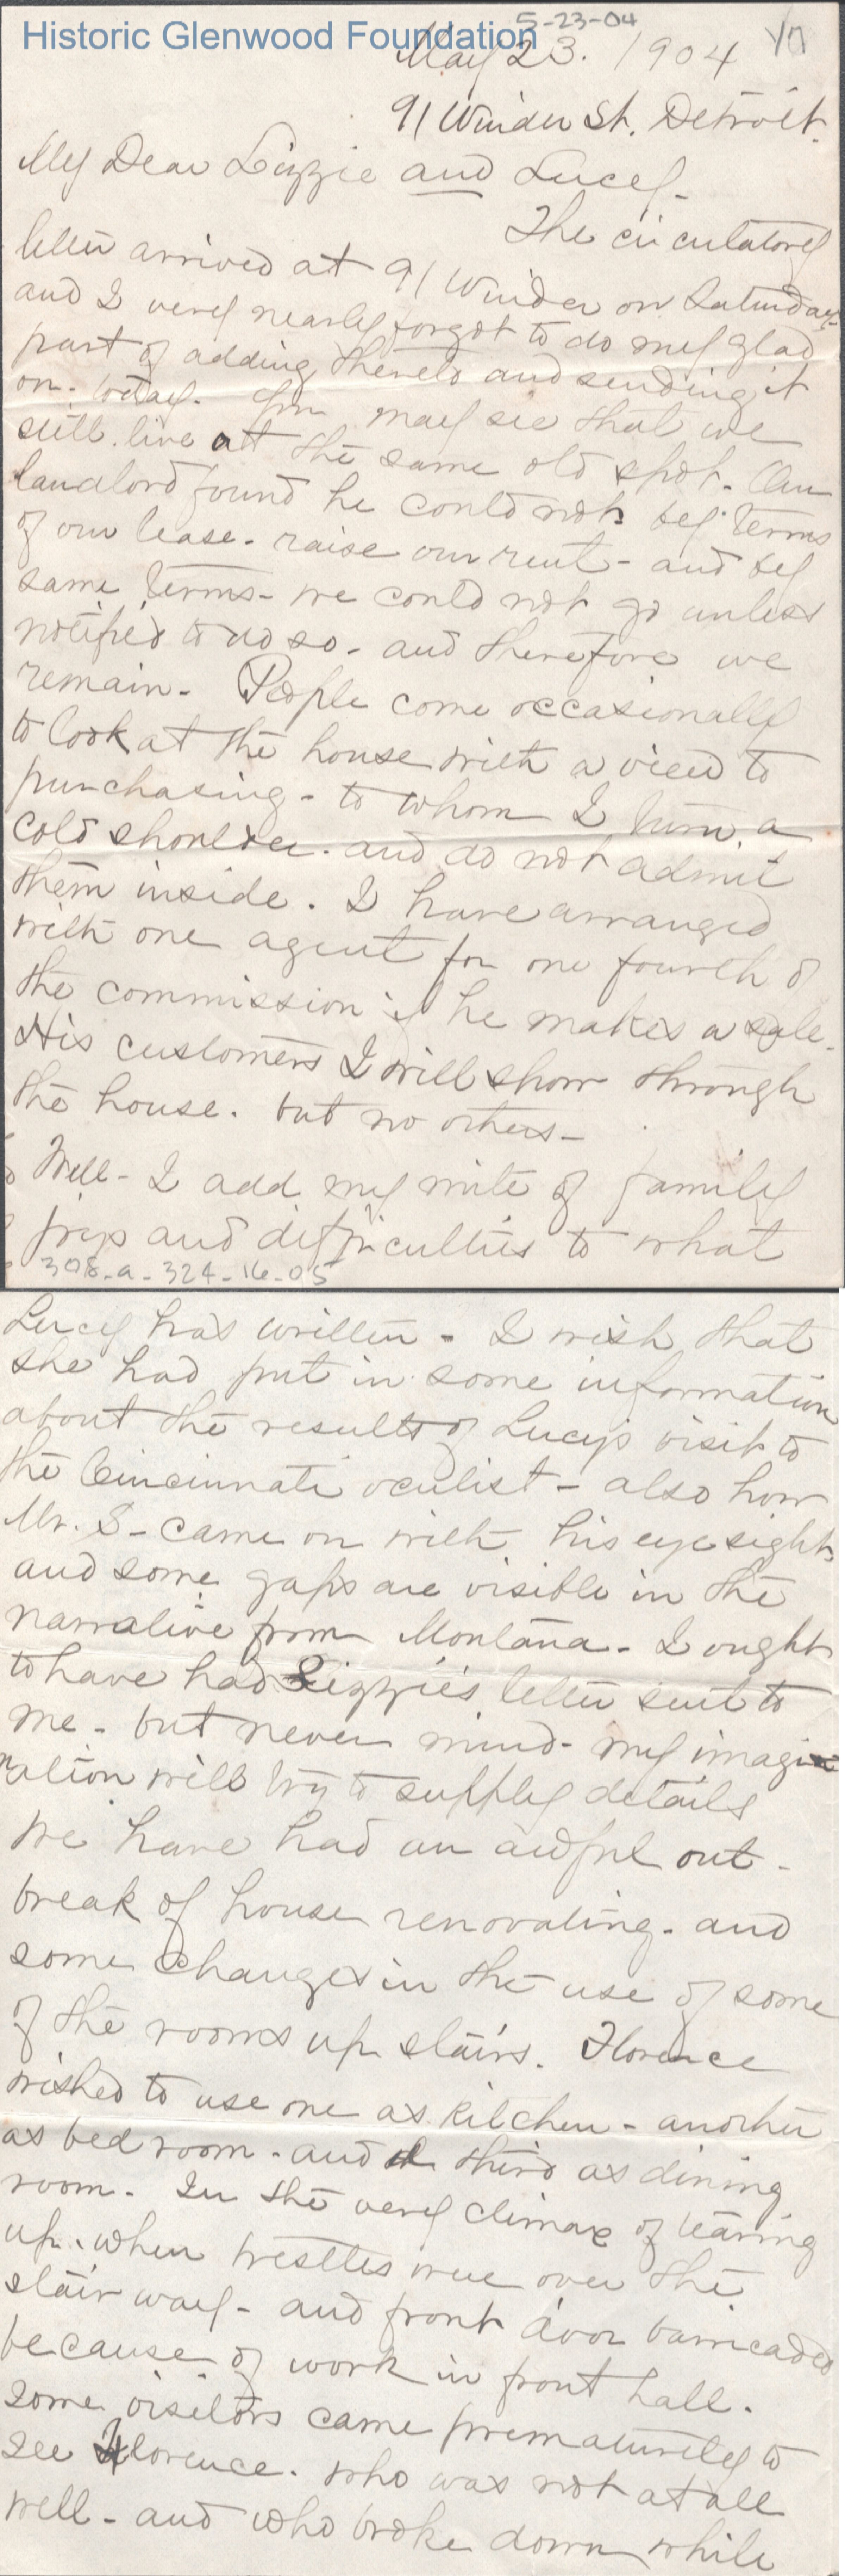 5-23-04
Historic Glenwood Foundation
May 23. 1904
91 Winder St. Detroit.
My Dear Lizzie and Lucy-
The circulatory
letter arrived at 91 Winder on Saturday-
and I very nearly forgot to do my glad
part of adding thereto and sending it
on. today. You may see that we
still live at the same old spot. Our
landlord found he could not by terms
of our lease- raise our rent- and by
same terms- we could not go unless
notified to do so- and therefore we
remain- People come occasionally
to look at the house with a view to
purchasing- to whom I turn a
cold shoulder. and do not admit
them inside. I have arranged
with one agent for one fourth of
the commission if he makes a sale-
His customers I will show through
the house. but no others-
Well- I add my mite of family
joys and difficulties to what
308-a-324-16-05
Lucy has written- I wish that
she had put in some information
about the results of Lucy's visit to
the Cincinnati oculist- also how
Mr. S- came on with his eyesight
and some gaps are visible in the
narrative from Montana- I ought
to have had Lizzie's letter sent to
me- but never mind- my imagi
nation will try to supply details
We have had an awful out-
break of house renovating- and
some changes in the use of some
of the rooms up stairs. Florence
wished to use one as kitchen- another
as bed room- and third as dining
room- In the very climax of tearing
up. when trestles were over the
stair way- and front door barricaded
because of work in front hall.
some visitors came prematurely to
see Florence. who was not at all
well- and who broke down while